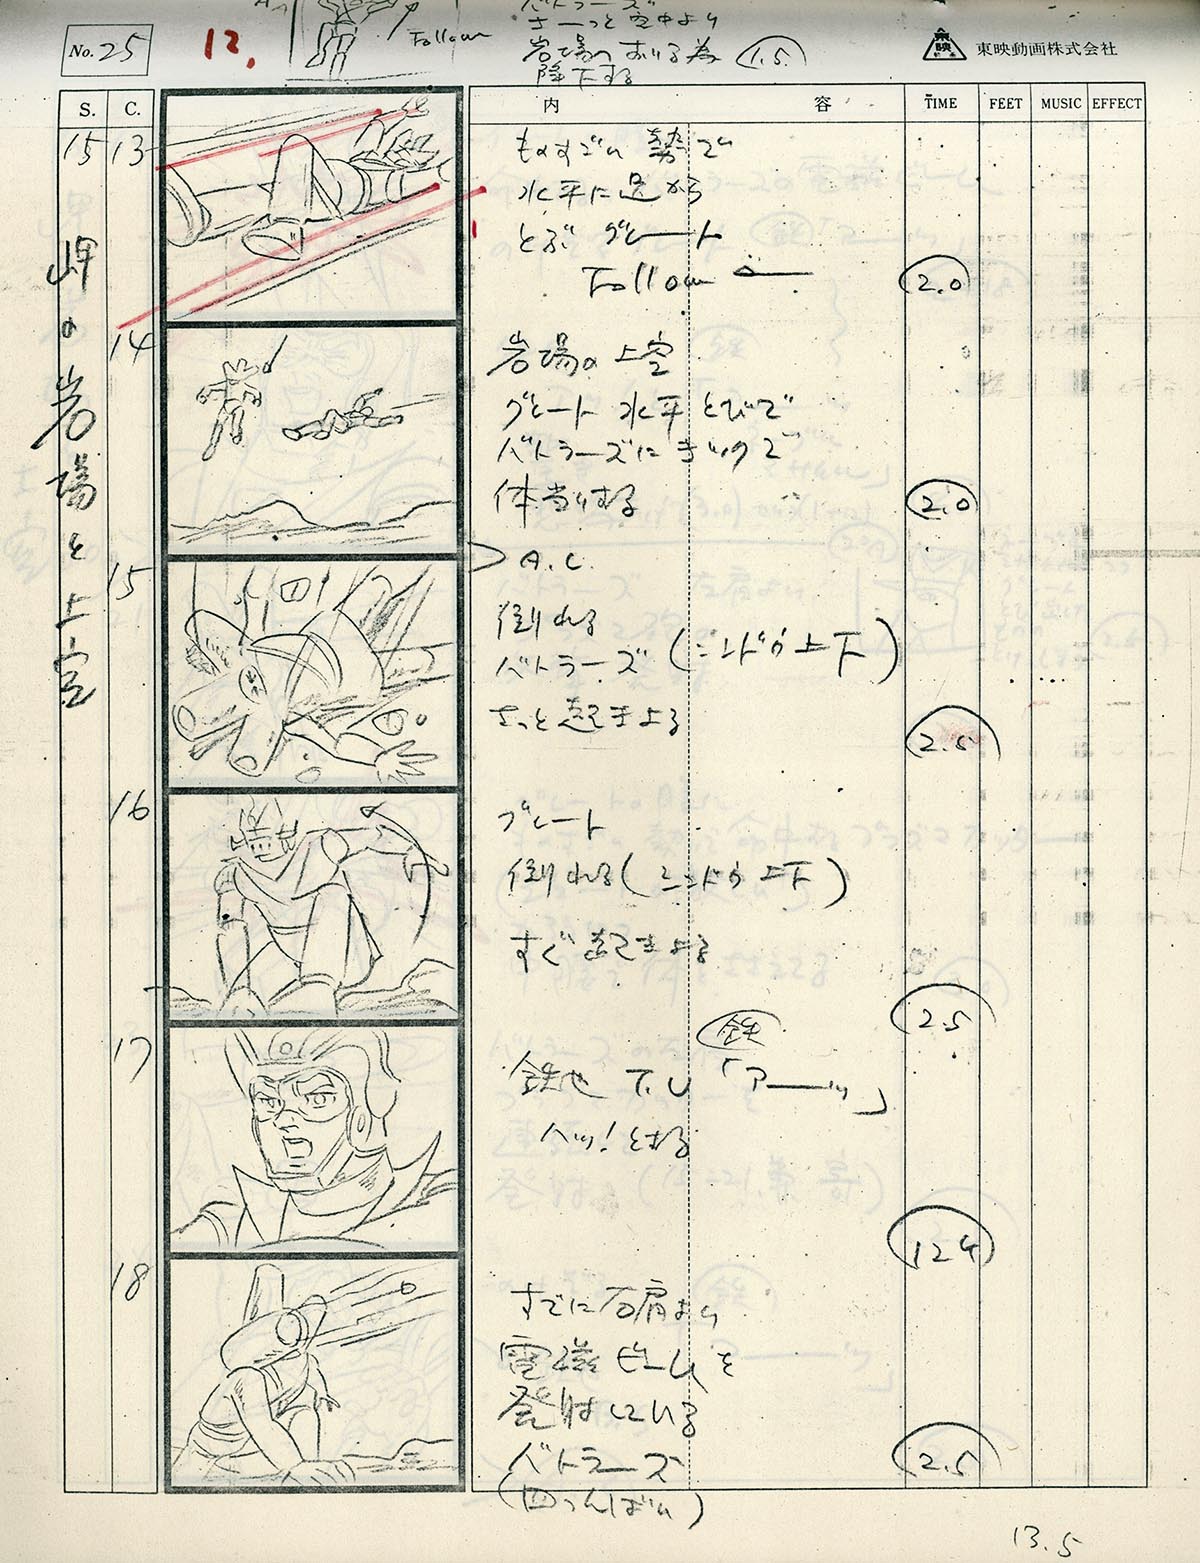 No. 25
12.
Follow
バトラーズ
さーっと空中より
岩場へおりる為
降下する
1.5.
東映
東映動画株式会社
S. C. 内 容 TIME FEET MUSIC EFFECT
15
岬の岩場と上空
13
ものすごい勢で
水平に足から
とぶグレート
Follow
2.0
14
岩場の上空
グレート 水平とびで
バトラーズにキックで
体当りする
2.0
A.C.
15
倒れる
バトラーズ (シンドウ上下)
さっと起きよる
2.5
16
グレート
倒れる(シンドウ上下)
すぐ起きよる
2.5
17
鉄
鉄也 T.U 「アーーッ」
ハッ!とする
1 24
18
すでに右肩より
電磁ビームを
発射している
バトラーズ
(四つんばい)
2.5
13.5